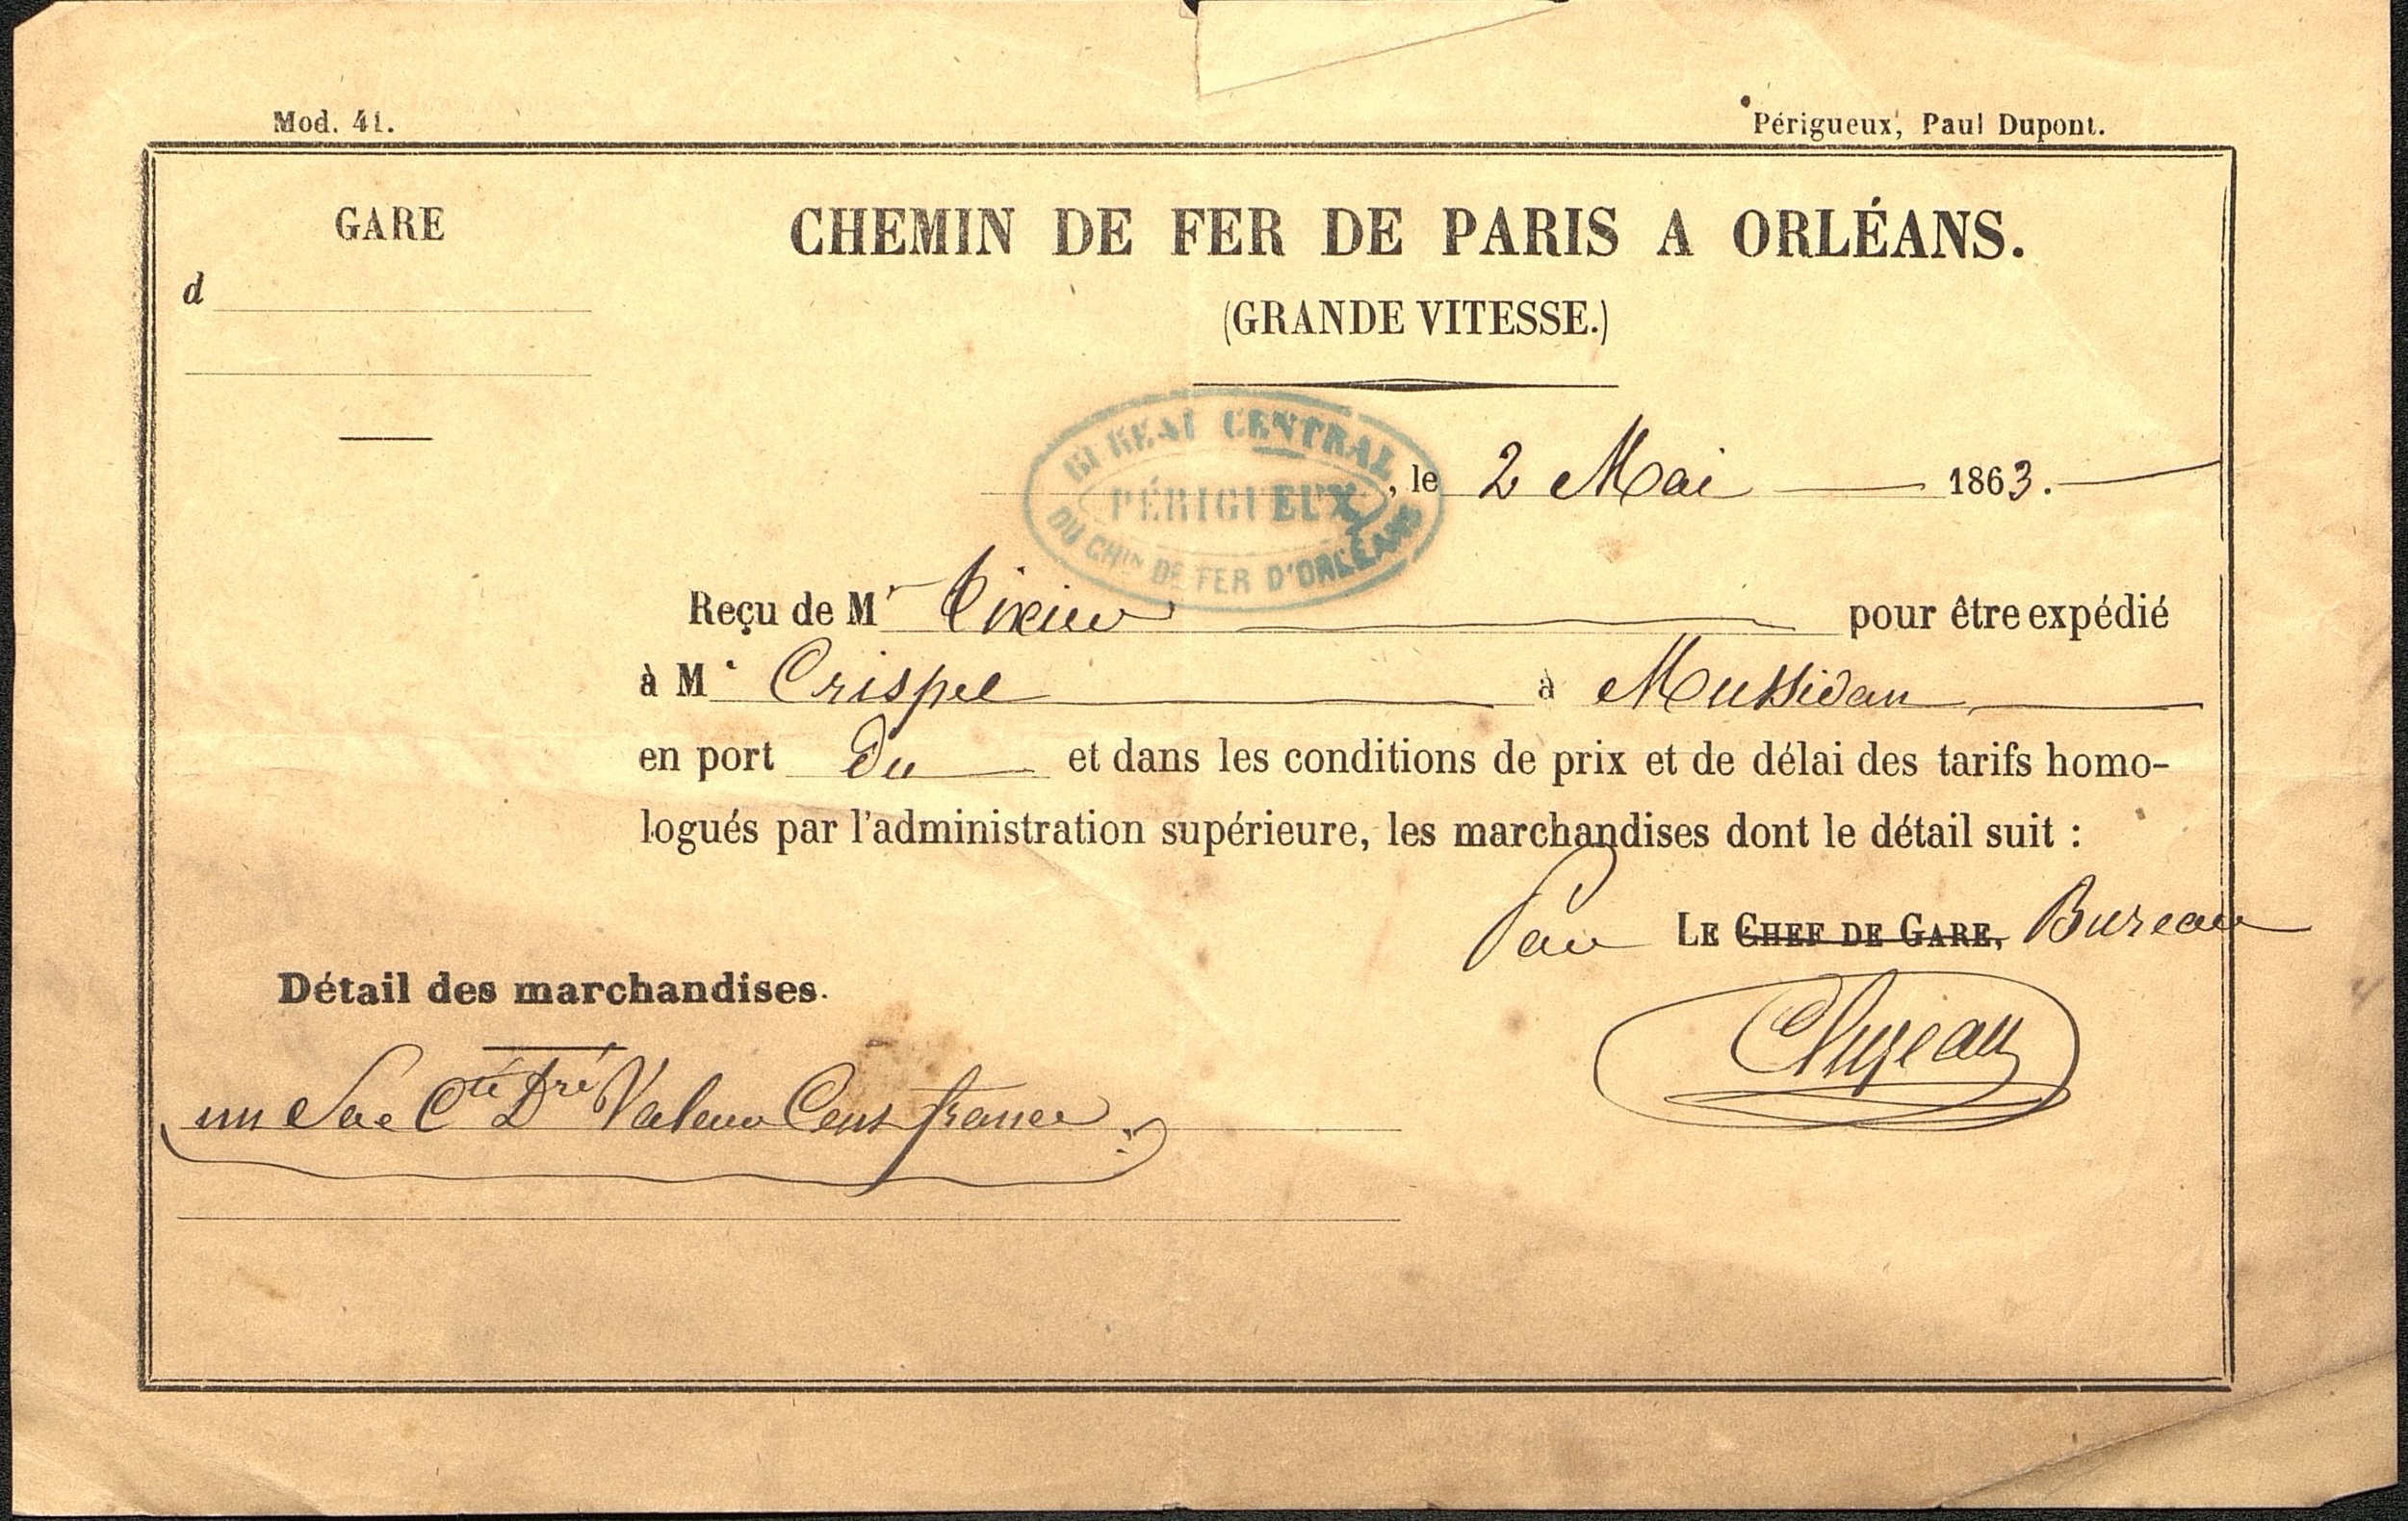 Mod. 41.
Périgueux, Paul Dupont.
GARE
d
CHEMIN DE FER DE PARIS A ORLÉANS.
(GRANDE VITESSE.)
BUREAU CENTRAL
PÉRIGUEUX
DU CHIN DE FER D'ORLÉANS
, le 2 Mai 1863.
Reçu de Mr pour être expédié
à Mr Crispel à Mussidan
en port Du et dans les conditions de prix et de délai des tarifs homo-
logués par l'administration supérieure, les marchandises dont le détail suit :
LE CHEF DE GARE, Bureau
Détail des marchandises.
un Sac Cté Dré Valeur Cent francs